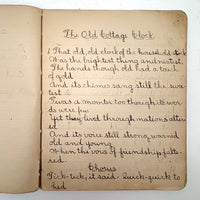 The Old Cottage Clock
1 That old, old clock of the household stock
Was the brightest thing and neatest.
The hands though old had a touch
of gold
And its chimes sang still the swee
test
Twas a monitor too though its wor
ds were few
Yet they lived through nations alter
ed
And its voice still strong, warned
old and young,
When the voice of friendship falte
red.
Chorus
Tick-tick, it said. Quick-quick to
bed